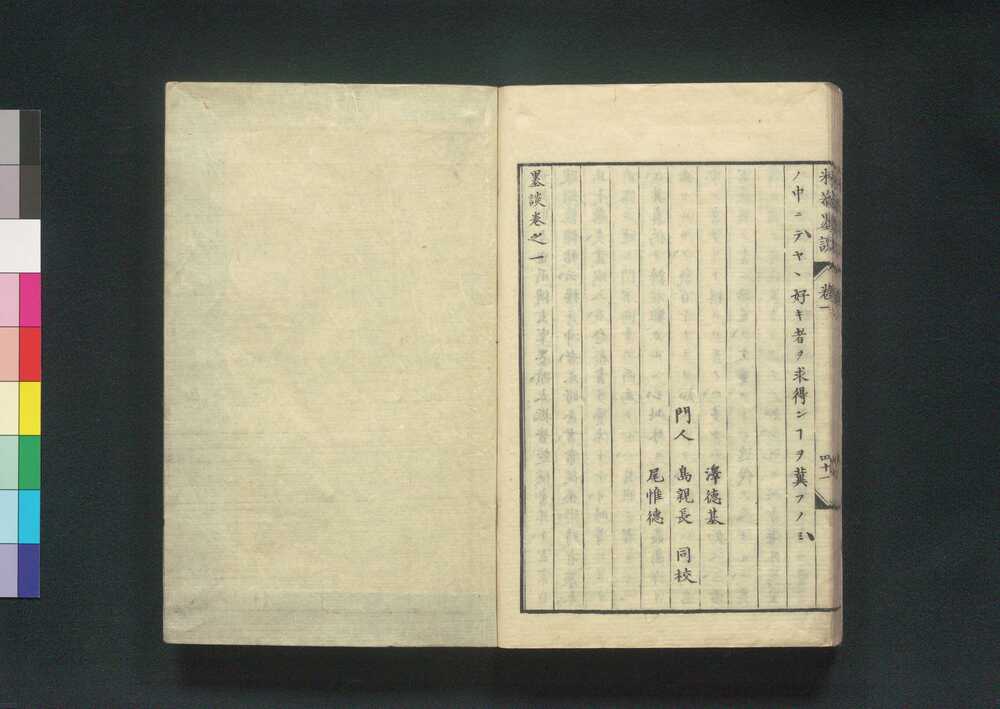 米菴墨談
卷一
四十一
ノ中ニテヤヽ好キ者ヲ求得ンヿヲ冀フノミ
澤德基
門人 島親長 同校
尾惟德
墨談卷之一